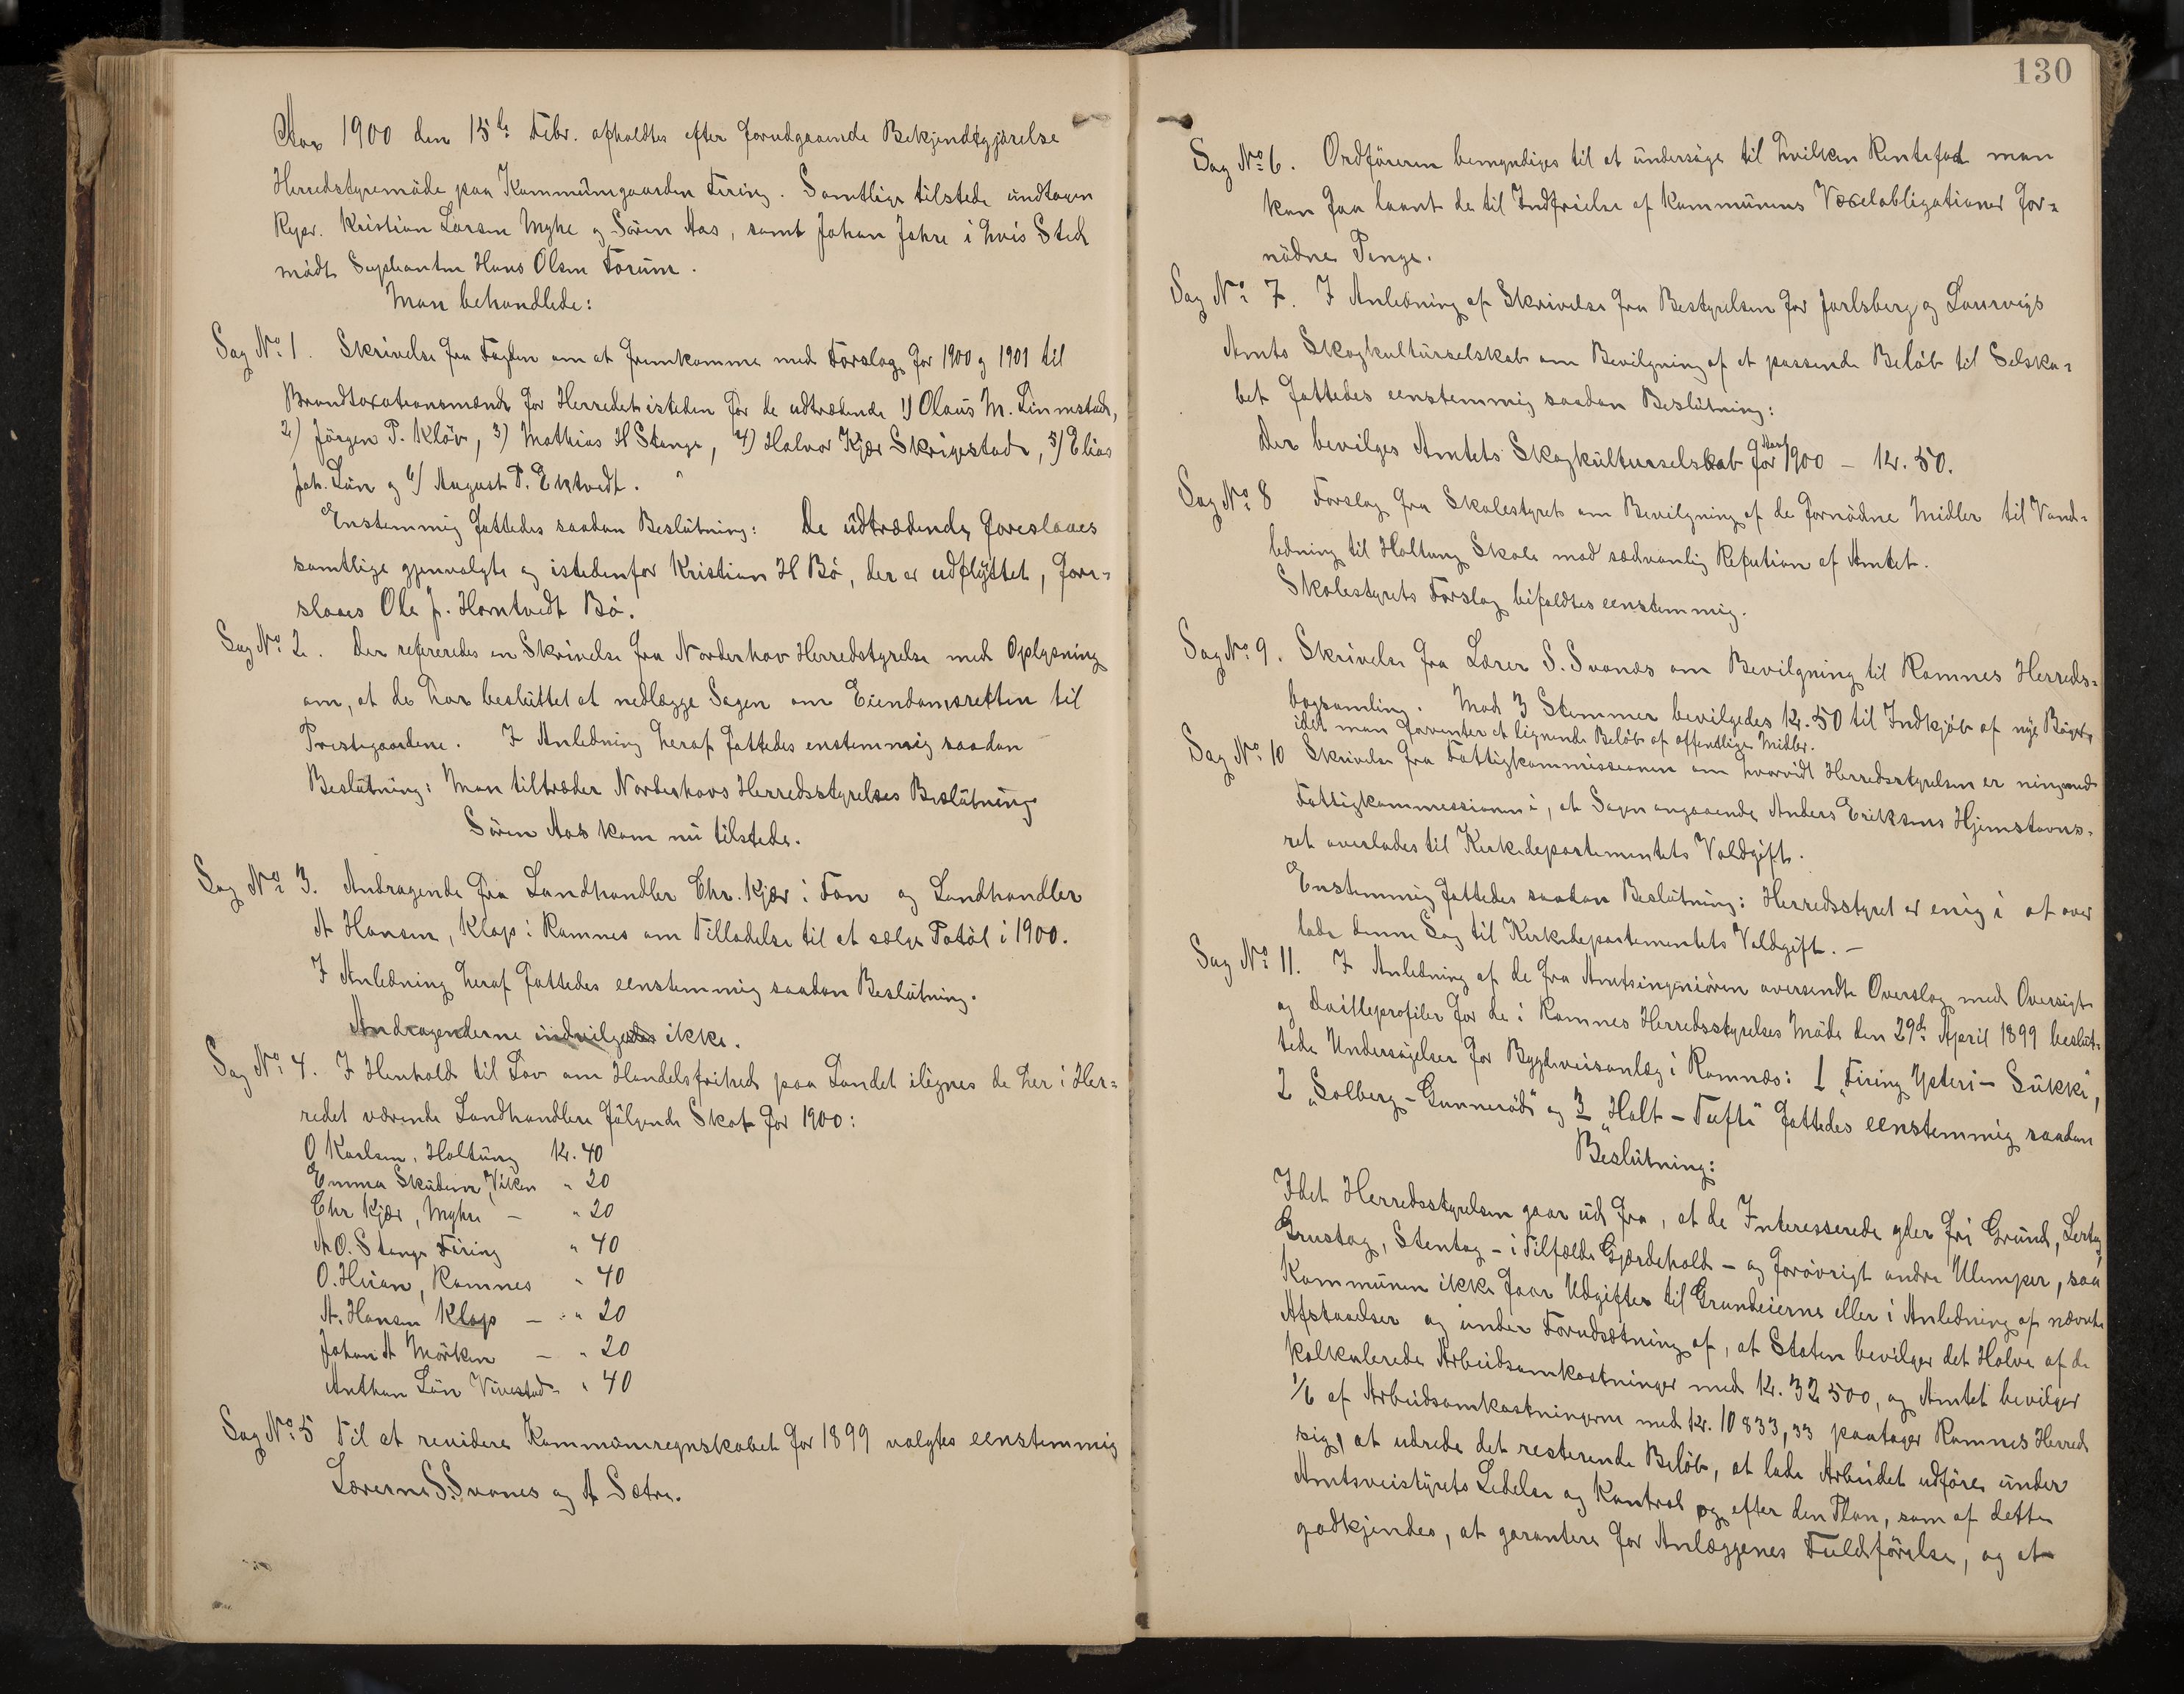 Aar 1900 den 15de Febr. afholdtes efter forudgaaende Bekjendtgjørelse
Herredstyremøde paa Kommunegaarden Firing. Samtlige tilstede undtagen
Repr. Kristian Larsen Myhe og Søren Aas, samt Johan Jahre i hvis Sted
mødte Suplianten Hans Olsen Forum.
Man behandlede:
Sag No 1. Skrivelse fra Fogden om at fremkomme med Forslag for 1900 og 1901 til
Brandtaxationsmænd for Herredet isteden for de udtrædende 1) Olaus M. Linnestad,
2) Jörgen P. Klöv, 3) Mathias H Stange, 4) Halvor Kjær Skrigestad, 5) Elias
Joh. Lün og 6) August P. Ektvedt.
Enstemmig fattedes saadan Beslutning: De udtrædende foreslaaes
samtlige gjenvalgte og istedenfor Kristian H Bö, der er udflyttet, fore-
slaaes Ole J. Horntvedt Bö.
Sag No 2. Der refereredes en Skrivelse fra Norderhov Herredstyrelse med Oplysning
om, at de har besluttet at nedlægge Sagen om Eiendomsretten til
Prestegaardene. I Anledning heraf fattedes enstemmig saadan
Beslutning: Man tiltræder Norderhovs Herredsstyrelses Beslutning
Sören Aas kom nu tilstede.
Sag No 3. Andragende fra Landhandler Chr. Kjær i Fon og Landhandler
A Hansen, Klop i Ramnes om Tilladelse til at sælge Potöl i 1900.
I Anledning heraf fattedes eenstemmig saadan Beslutning.
Andragenderne indvilgedes ikke.
Sag No 4. I Henhold til Lov om Handelsfrihed paa Landet ilignes de her i Her-
redet værende Landhandlere følgende Skat for 1900:
O Karlsen, Holtung Kr. 40
Emma Skudem, Viken " 20
Chr Kjær, Myhre — " 20
A O. Stange Firing " 40
O. Hvian, Ramnes " 40
A. Hansen Klop — " 20
Johan A Mörken — " 20
Anthon Lün Vivestad " 40
Sag No 5 Til at revidere Kommuneregnskabet for 1899 valgtes eenstemmig
Lærerne S. Svanes og A Sætre.
130
Sag No 6. Ordföreren bemyndiges til at undersöge til hvilken Rentefod man
kan faa laant de til Indfrielse af Kommunens Vexelobligationer for-
nödne Penge.
Sag No 7. I Anledning af Skrivelse fra Bestyrelsen for Jarlsberg og Laurvigs
Amts Skogkulturselskab om Bevilgning af et passende Belöb til Selska-
bet fattedes eenstemmig saadan Beslutning:
Der bevilges Amtets Skogkulturselskab for Aaret 1900 — Kr. 50.
Sag No 8 Forslag fra Skolestyret om Bevilgning af de fornödne Midler til Vand-
ledning til Holtung Skole mod sædvanlig Refution af Amtet.
Skolestyrets Forslag bifaldtes eenstemmig.
Sag No 9. Skrivelse fra Lærer S. Svanæs om Bevilgning til Ramnes Herreds-
bogsamling. Mod 3 Stemmer bevilgedes Kr. 50 til Indkjöb af nye Böger,
idet man forventer et lignende Belöb af offentlige Midler.
Sag No 10 Skrivelse fra Fattigkommissionen om hvorvidt Herredsstyrelsen er enig med
Fattigkommissionen i, at Sagen angaaende Anders Eriksens Hjemstavns-
ret overlades til Kirkedepartementets Voldgift.
Enstemmig fattedes saadan Beslutning: Herredsstyret er enig i at over
lade denne Sag til Kirkedepartementets Voldgift. —
Sag No 11. I Anledning af de fra Amtsingeniören oversendte Overslag med Oversigt
og Detailleprofiler for de i Ramnes Herredsstyrelses Möde den 29de April 1899 beslut-
tede Undersögelser for Bygdeveisanlæg i Ramnæs: 1 "Firing Ysteri — Sukke",
2 "Solberg — Gunneröd" og 3 "Holt — Tufte" fattedes eenstemmig saadan
Beslutning:
Idet Herredsstyrelsen gaar ud fra, at de Interesserede yder fri Grund, Lertag,
Grustag, Stentag — i Tilfælde Gjærdehold — og forövrigt andre Ulemper, saa
Kommunen ikke faar Udgifter til Grundeierne eller i Anledning af nævnte
Afstaaelser og under Forudsætning af, at Staten bevilger det Halve af de
kalkulerede Arbeidsomkostninger med Kr. 32 500, og Amtet bevilger
1/6 af Arbeidsomkostningerne med Kr. 10 833,33 paatager Ramnes Herred
sig, at udrede det resterende Belöb, at lade Arbeidet udföre under
Amtsveistyrets Ledelse og Kontrol og efter den Plan, som af dette
godkjendes, at garantere for Anlæggenes Fuldförelse, og at